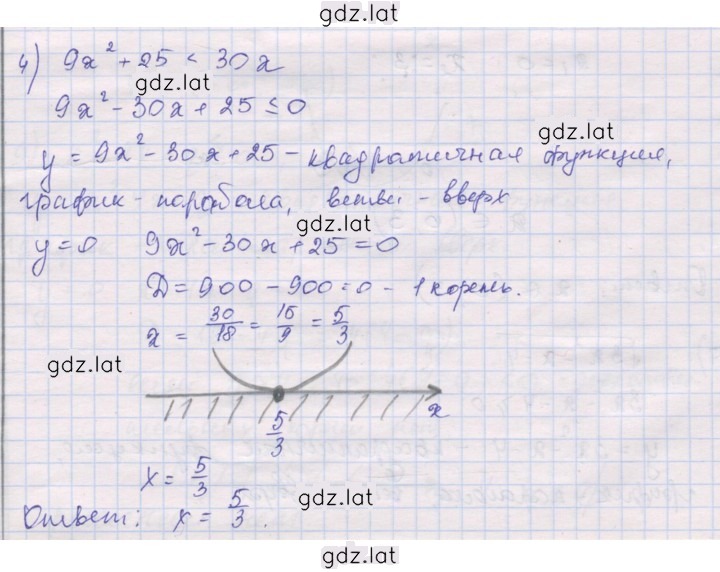 gdz.lat
4) 9x² + 25 < 30x
gdz.lat
9x² - 30x + 25 ≤ 0
gdz.lat
y = 9x² - 30x + 25 - квадратичная функция,
график - парабола, ветви - вверх
gdz.lat
y = 0 9x² - 30x + 25 = 0
Д = 900 - 900 = 0 - 1 корень.
x = 30/18 = 15/9 = 5/3
gdz.lat
x
5/3
x = 5/3
gdz.lat
Ответ: x = 5/3.
gdz.lat